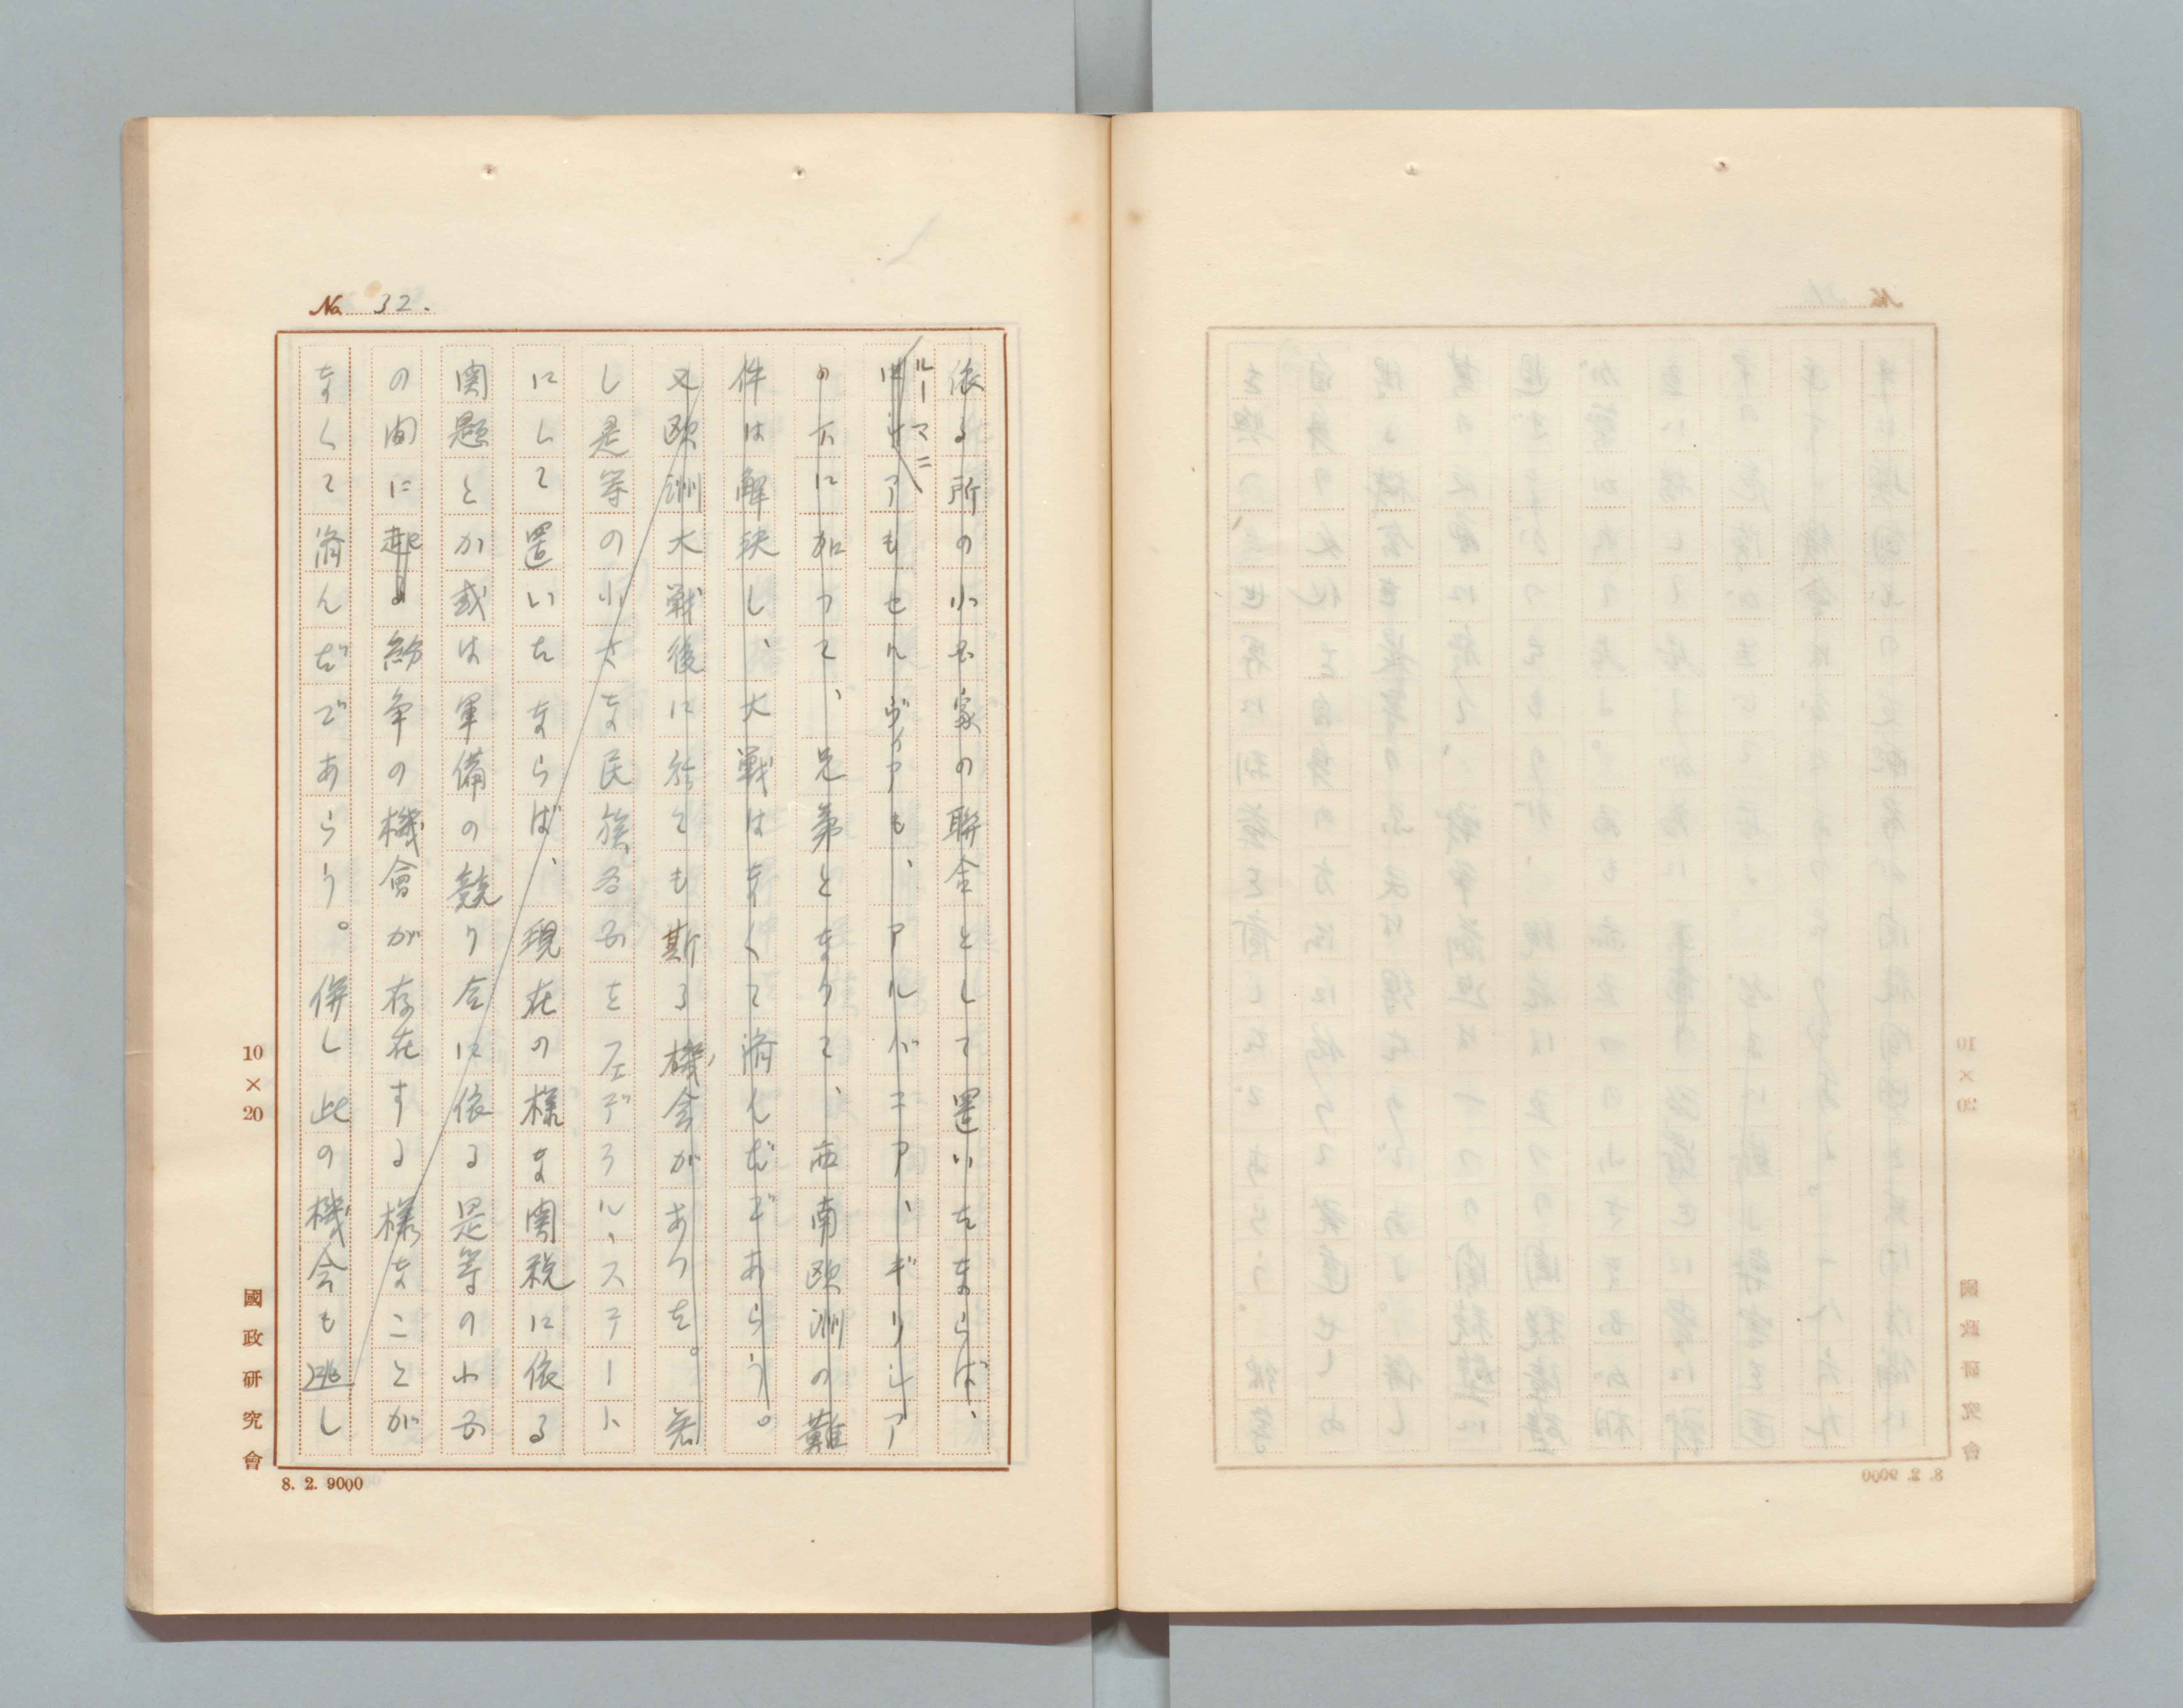 No. 32.
依る所の小国家の聯合として置いたならば、
ルーマニ
アもセルヴィアも、アルバニア、ギリシア
の六に加つて、兄弟となりて、西南欧洲の難
件は解決し、大戦はなくて済んだであらう。
又欧洲大戦後に於ても斯る機会があつた。若
し是等の小さな民族各国をフェデラル、ステート
にして置いたならば、現在の様な関税に依る
関題とか或は軍備の競り合に依る是等の小国
の間に起る紛争の機會が存在する様なことが
なくて済んだであらう。併し此の機会も逃し
10×20
國政研究會
8. 2. 9000